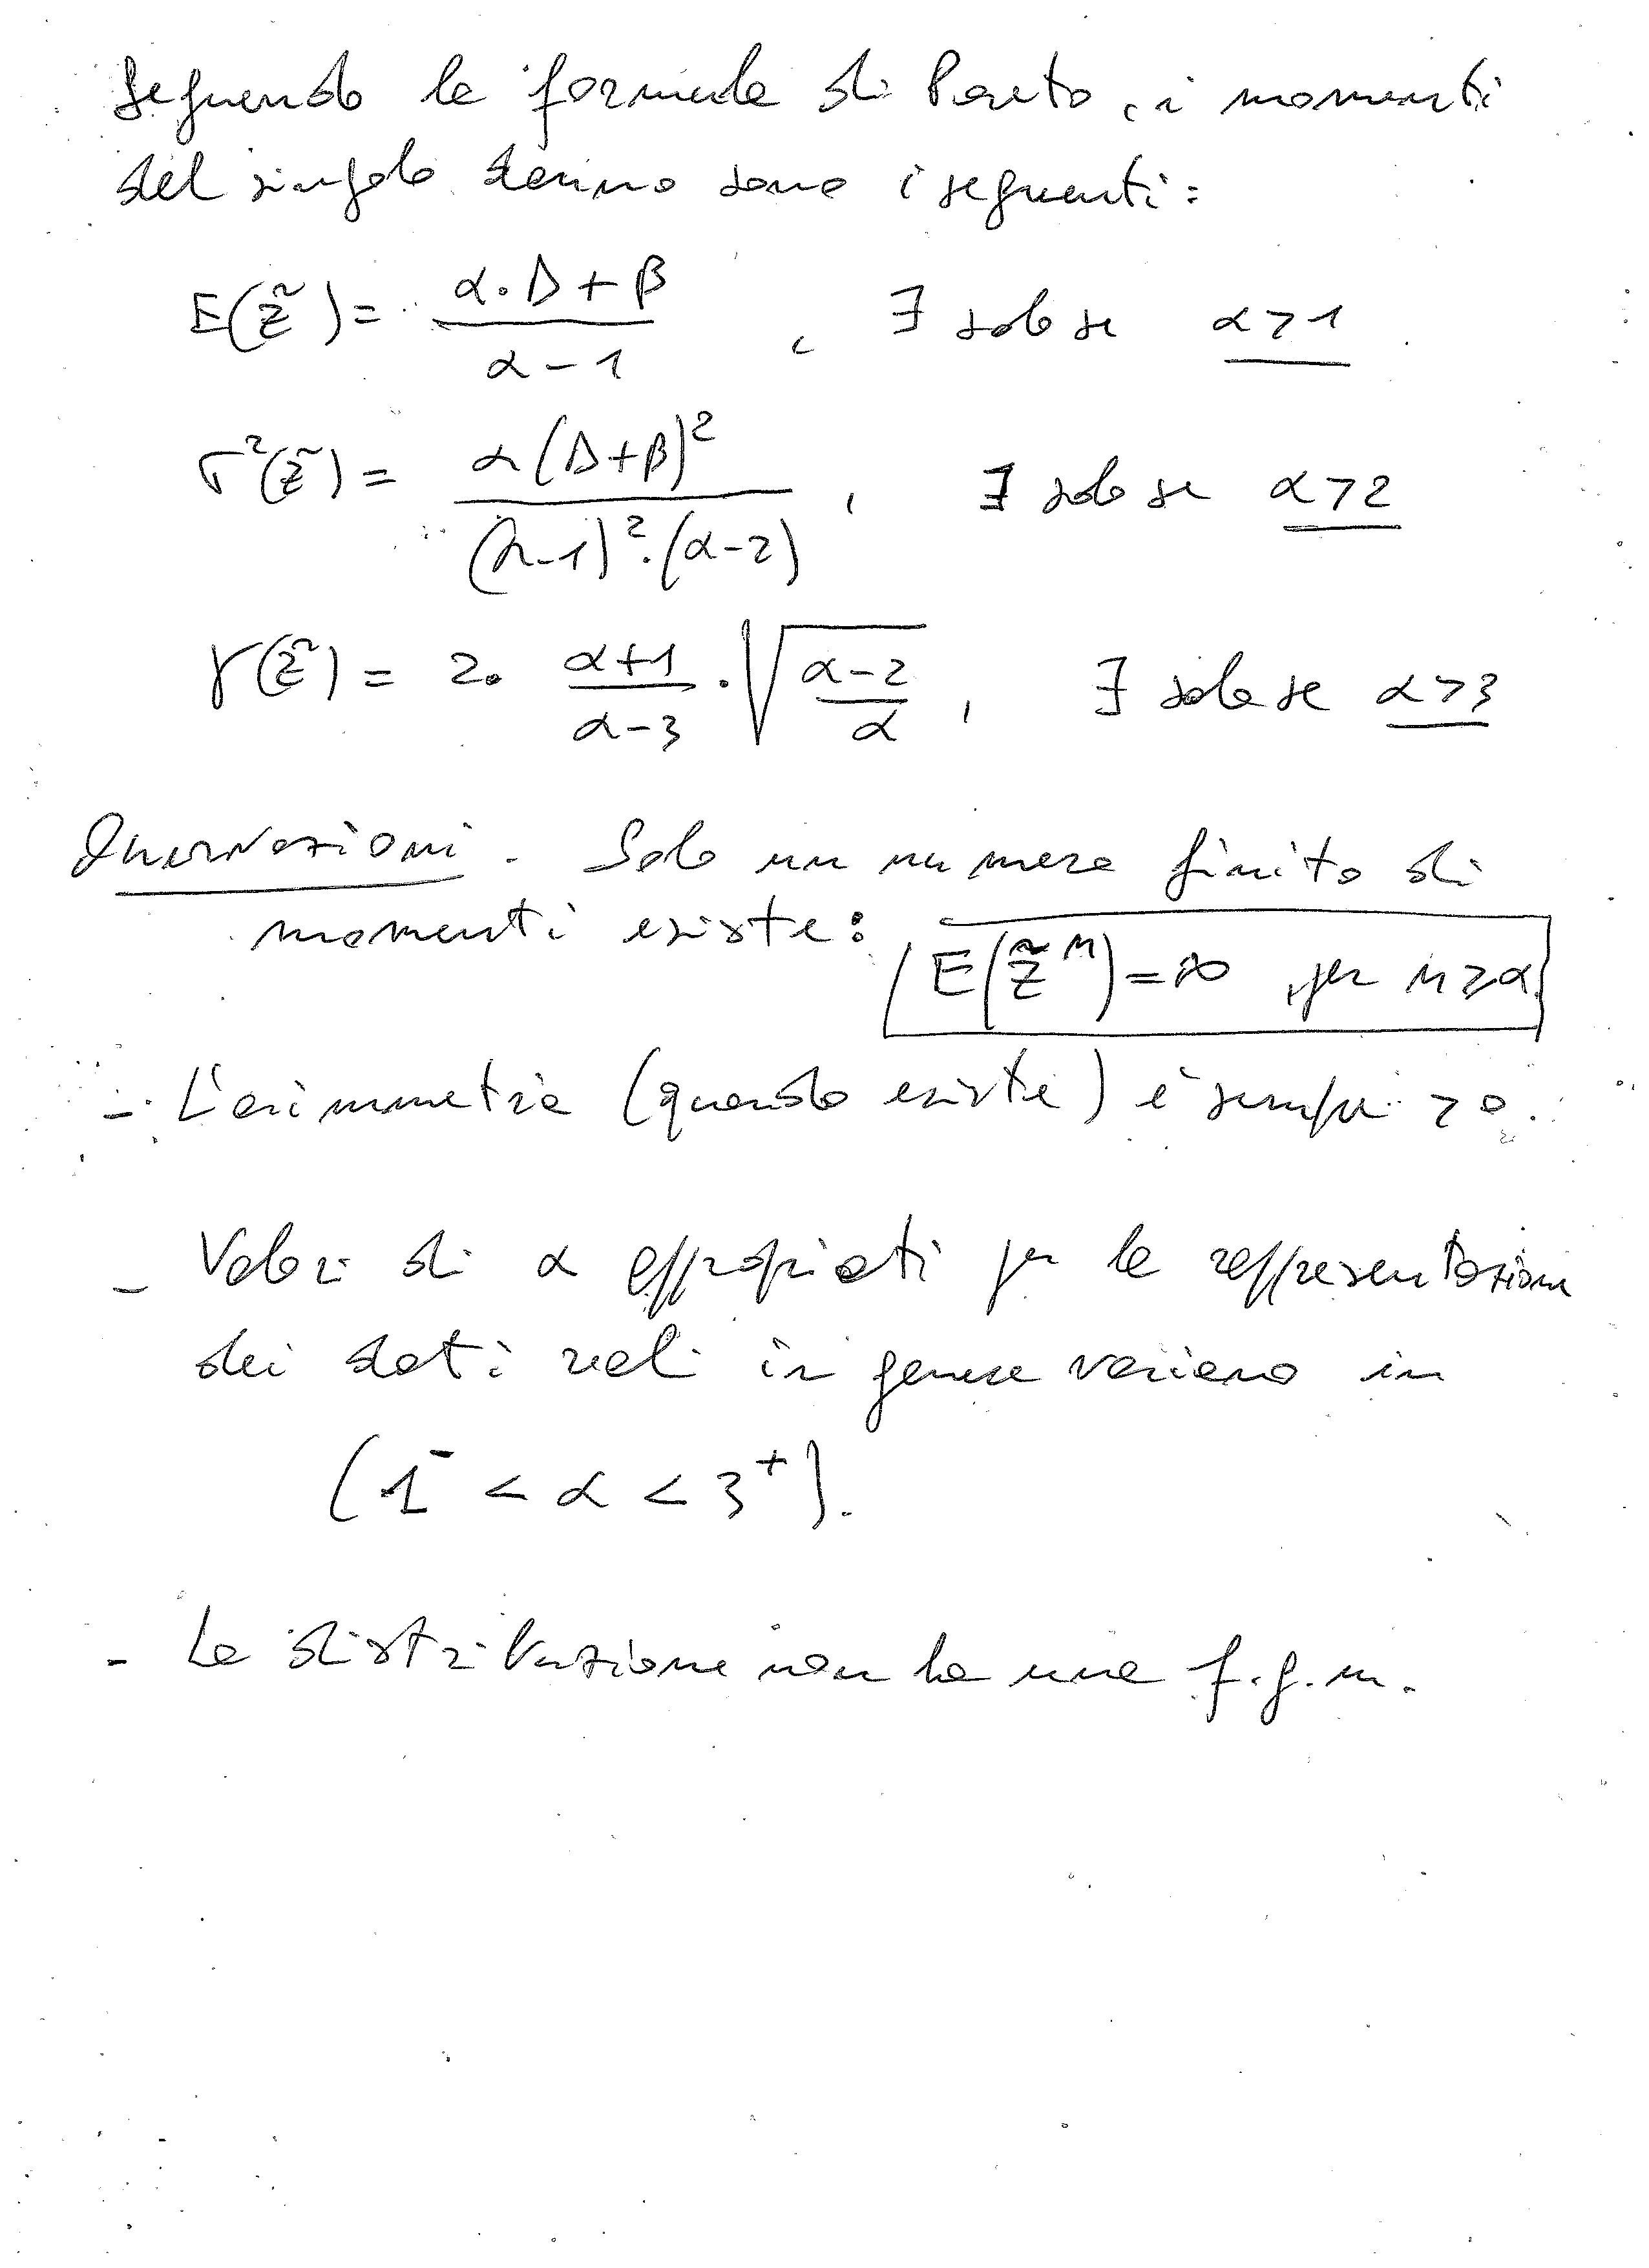 Seguendo la formula di Pareto, i momenti
del singolo danno sono i seguenti:
E(z̃) = (α·Δ + β)/(α - 1) , ∃ solo se α > 1
σ²(z̃) = α(Δ+β)²/((α-1)²·(α-2)) , ∃ solo se α > 2
γ(z̃) = 2· (α+1)/(α-3) · √((α-2)/α) , ∃ solo se α > 3
Osservazioni. Solo un numero finito di
momenti esiste: E(z̃ⁿ) = ∞ , per n ≥ α
- L'asimmetria (quando esiste) è sempre > 0.
- Valori di α appropiati per la rappresentazione
dei dati reali in genere variano in
(1⁻ < α < 3⁺).
- La distribuzione non ha una f.g.m.